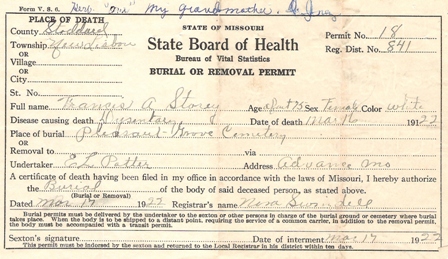 Form V. S. 6. "Ora" My Grandmother
PLACE OF DEATH
STATE OF MISSOURI
County Stoddard
Permit No. 18
Township New Lisbon
State Board of Health
Reg. Dist. 841
OR
Village
Bureau of Vital Statistics
OR
BURIAL OR REMOVAL PERMIT
City
St. No.
Full name Francis A Storey Age about 75 Sex Female Color White
Disease causing death Dysentery Date of death Mar 16 1922
Place of burial Pleasant Grove Cemetery
OR
Removal to via
Undertaker E L Potter Address Advance Mo
A certificate of death having been filed in my office in accordance with the laws of Missouri, I hereby authorize
the Burial of the body of said deceased person, as stated above.
(Burial or Removal)
Dated Mar 17 1922 Registrar's name Nora Swindell
Burial permits must be delivered by the undertaker to the sexton or other persons in charge of the burial ground or cemetery where burial
takes place. When the body is to be shipped to a distant point, requiring the service of a common carrier, in addition to the removal permit
the body must be accompanied with a transit permit.
Sexton's signature Date of interment Mar 17 1922
This permit must be endorsed by the sexton and returned to the Local Registrar in his district within ten days.